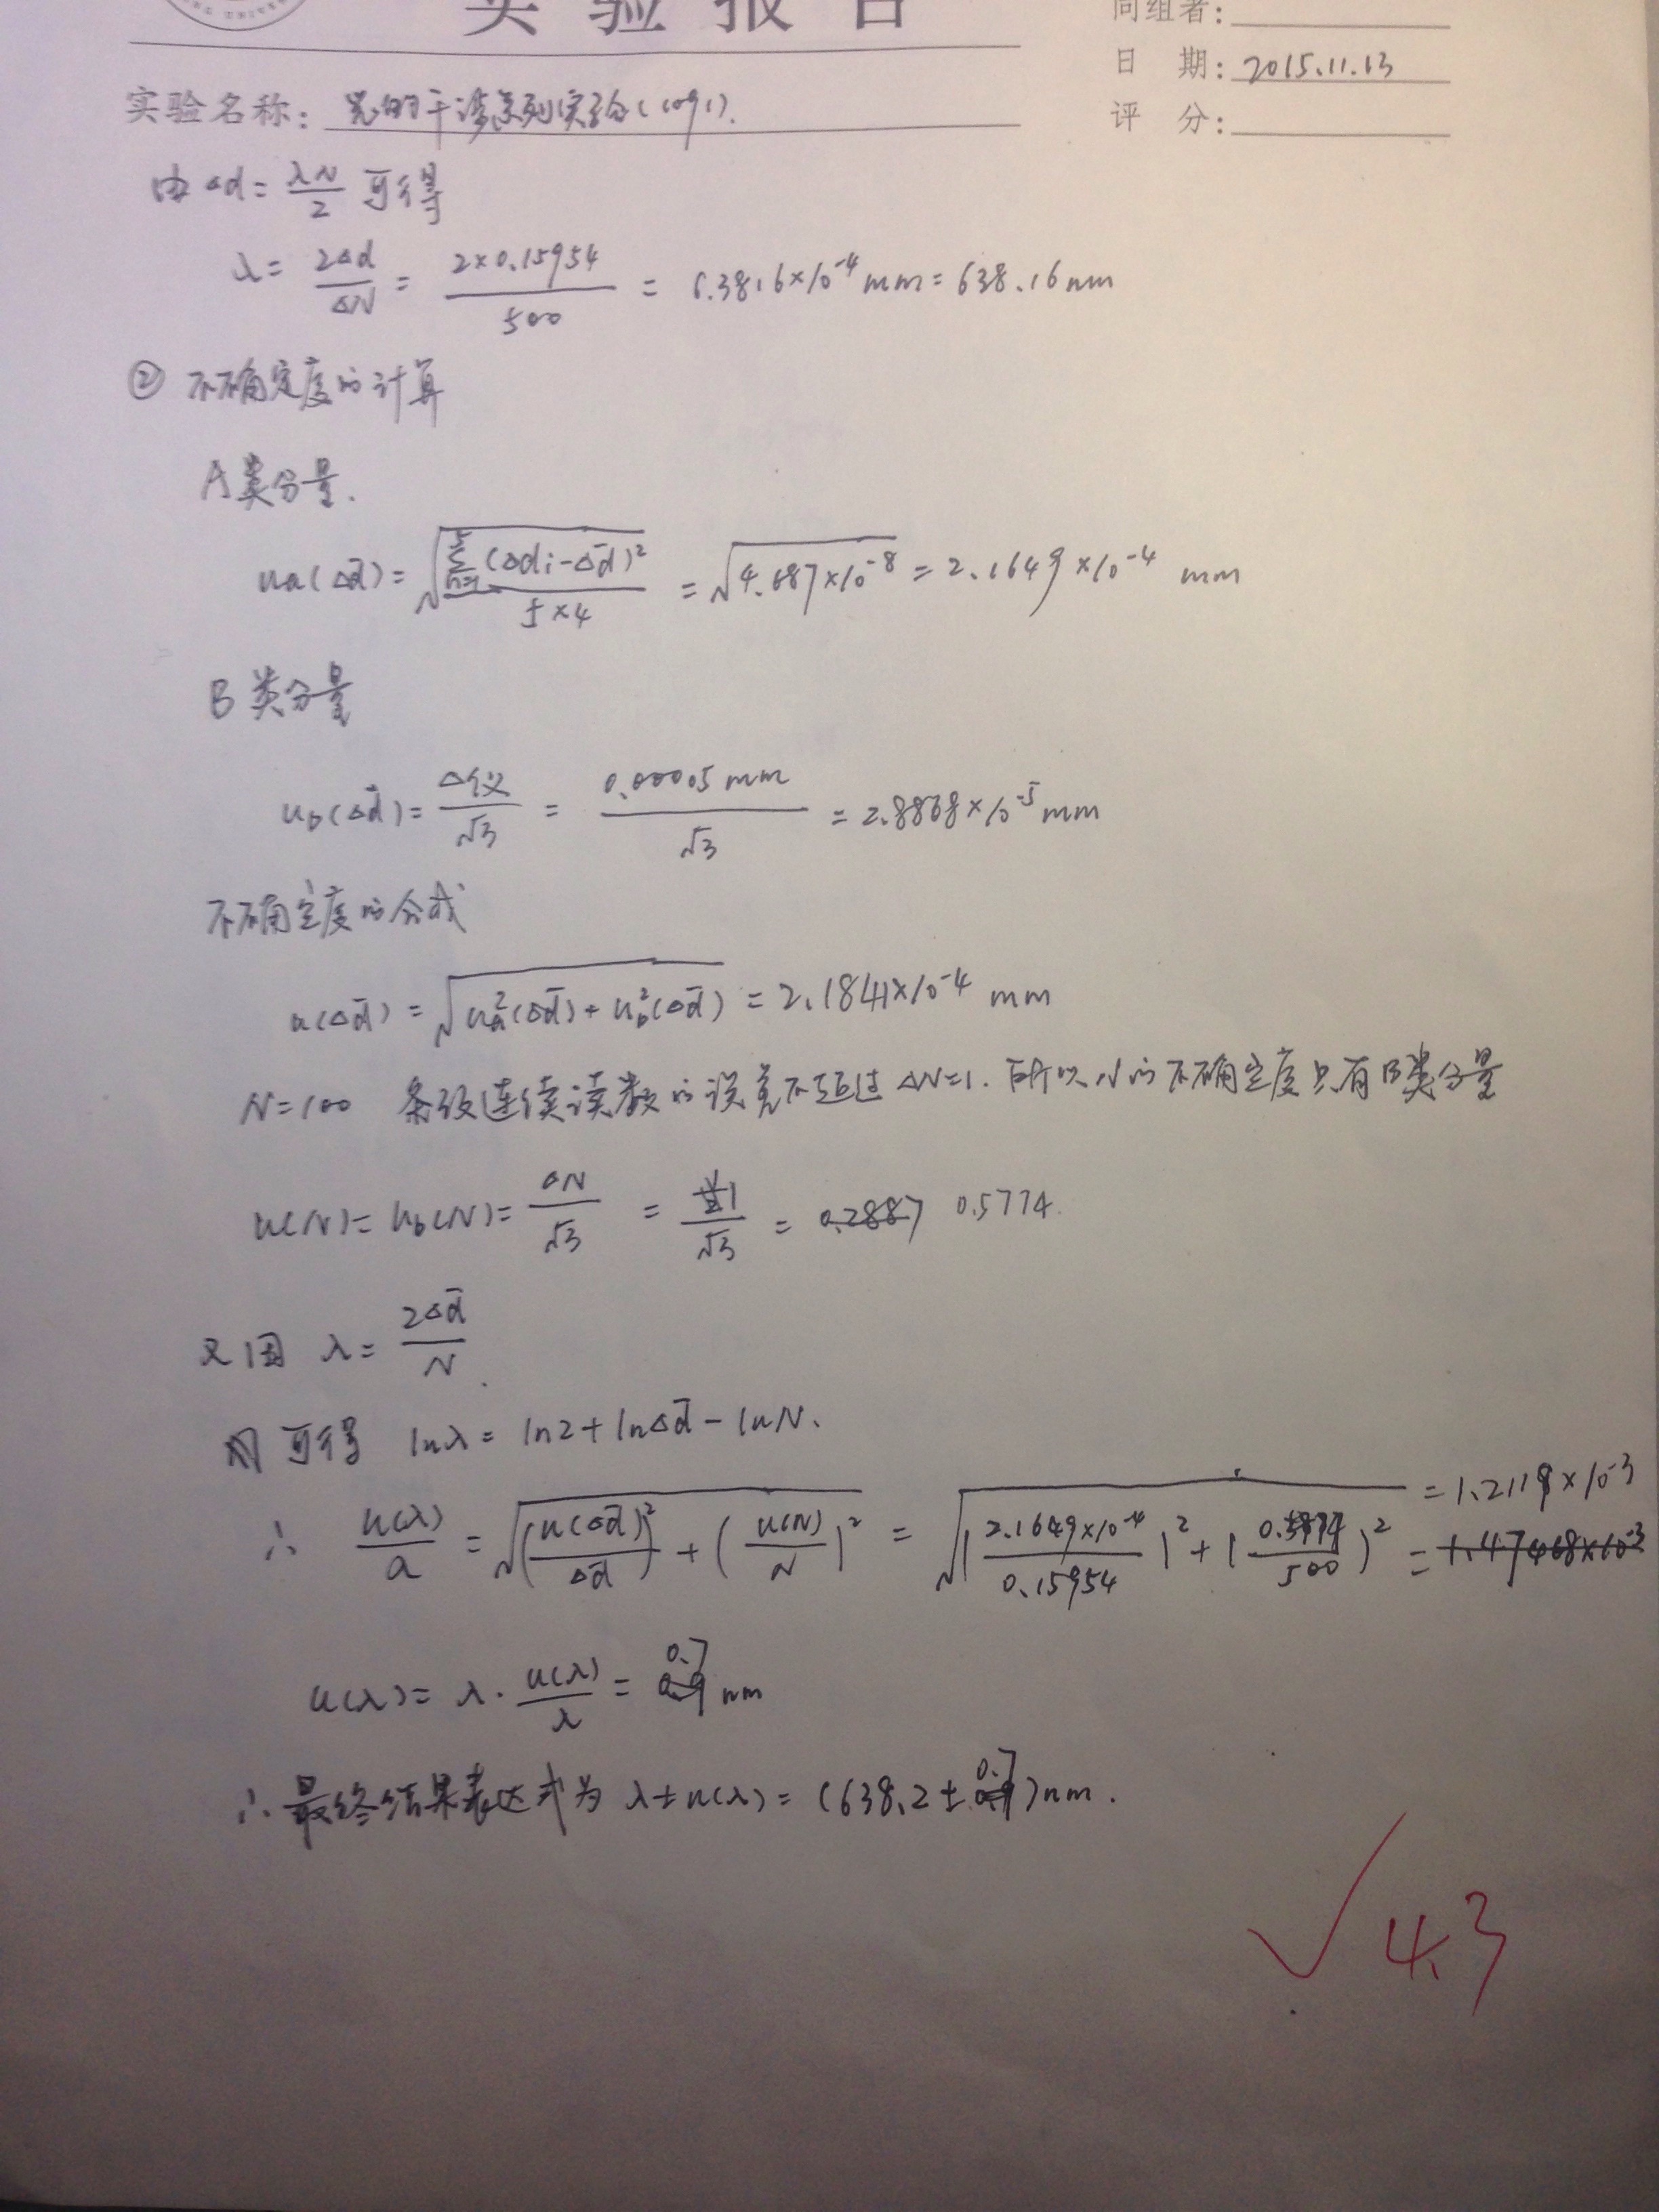 实验报告
同组者:
日 期: 2015.11.13
实验名称: 光的干涉系列实验(1091).
评 分:
由 Δd = λN/2 可得
λ = 2Δd/ΔN = 2×0.15954/500 = 6.3816×10⁻⁴ mm = 638.16 nm
② 不确定度的计算
A类分量.
ua(Δd̄) = √(Σ(Δdi-Δd̄)²/5×4) = √4.687×10⁻⁸ = 2.1649×10⁻⁴ mm
B类分量
ub(Δd̄) = Δ仪/√3 = 0.00005mm/√3 = 2.8868×10⁻⁵ mm
不确定度的合成
u(Δd̄) = √(ua²(Δd̄)+ub²(Δd̄)) = 2.1841×10⁻⁴ mm
N=100 条纹连续读数的误差不超过 ΔN=1. 所以N的不确定度只有B类分量
u(N) = ub(N) = ΔN/√3 = 1/√3 = 0.2887 0.5774.
又因 λ = 2Δd̄/N.
则可得 lnλ = ln2 + lnΔd̄ - lnN.
∴ u(λ)/a = √((u(Δd̄)/Δd̄)² + (u(N)/N)²) = √((2.1649×10⁻⁴/0.15954)² + (0.5774/500)²) = 1.47468×10⁻³ = 1.2119×10⁻³
u(λ) = λ·u(λ)/λ = 0.9 0.7 nm
∴ 最终结果表达式为 λ±u(λ) = (638.2±0.9 0.7)nm.
√ 4.3